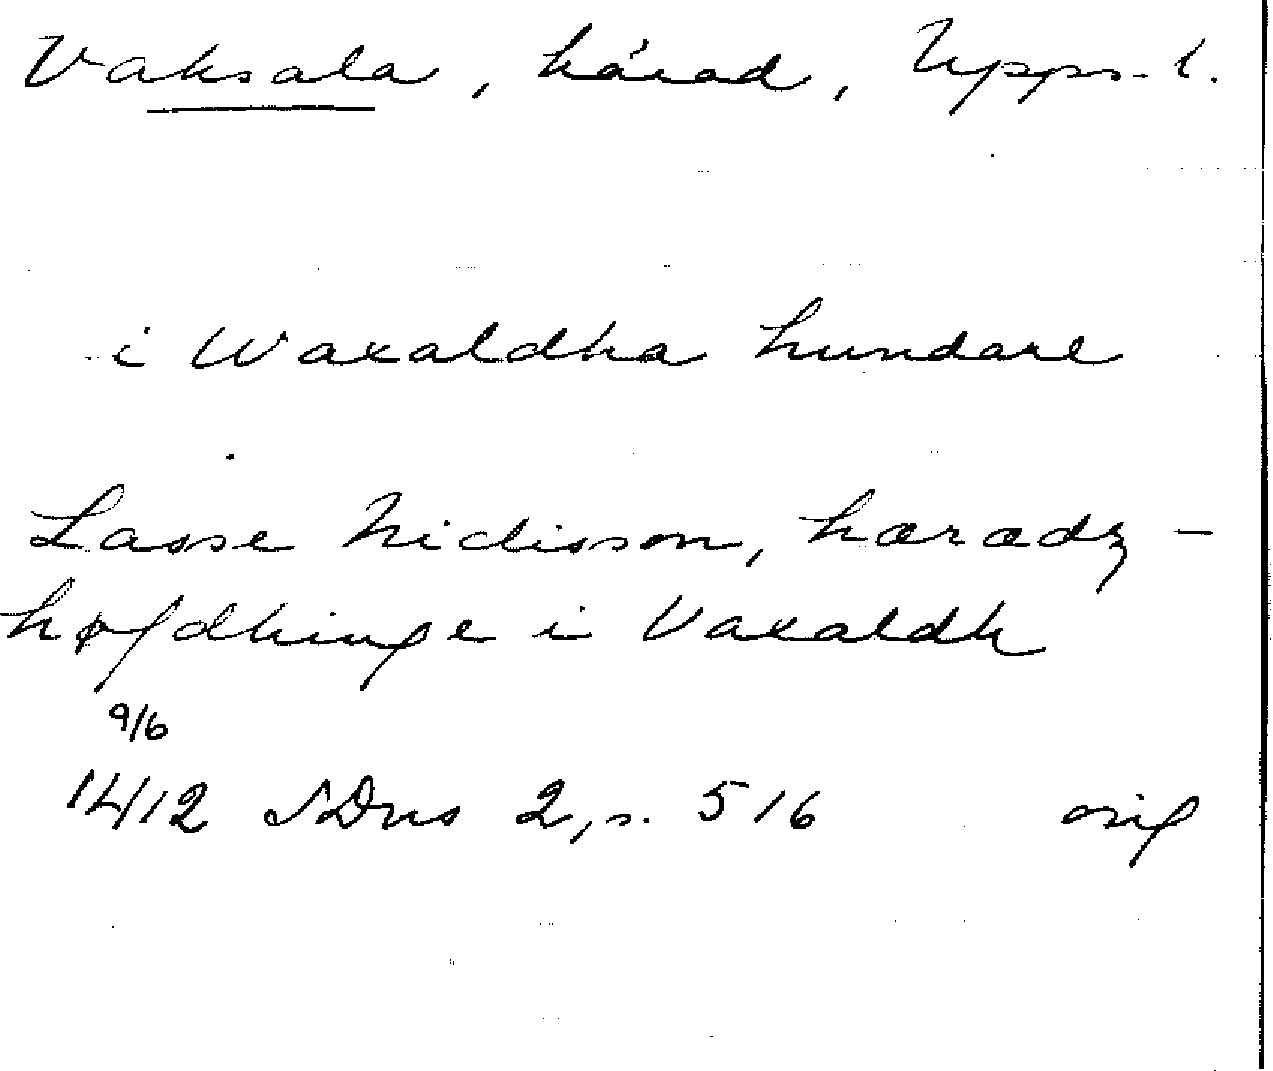 Vaksala, härad, Upps. l.
i Waxaldha hundare
Lasse Niclisson, hæradz-
høfdhinge i Vaxaldh
9/6
1412 SDns 2, s. 516 orig